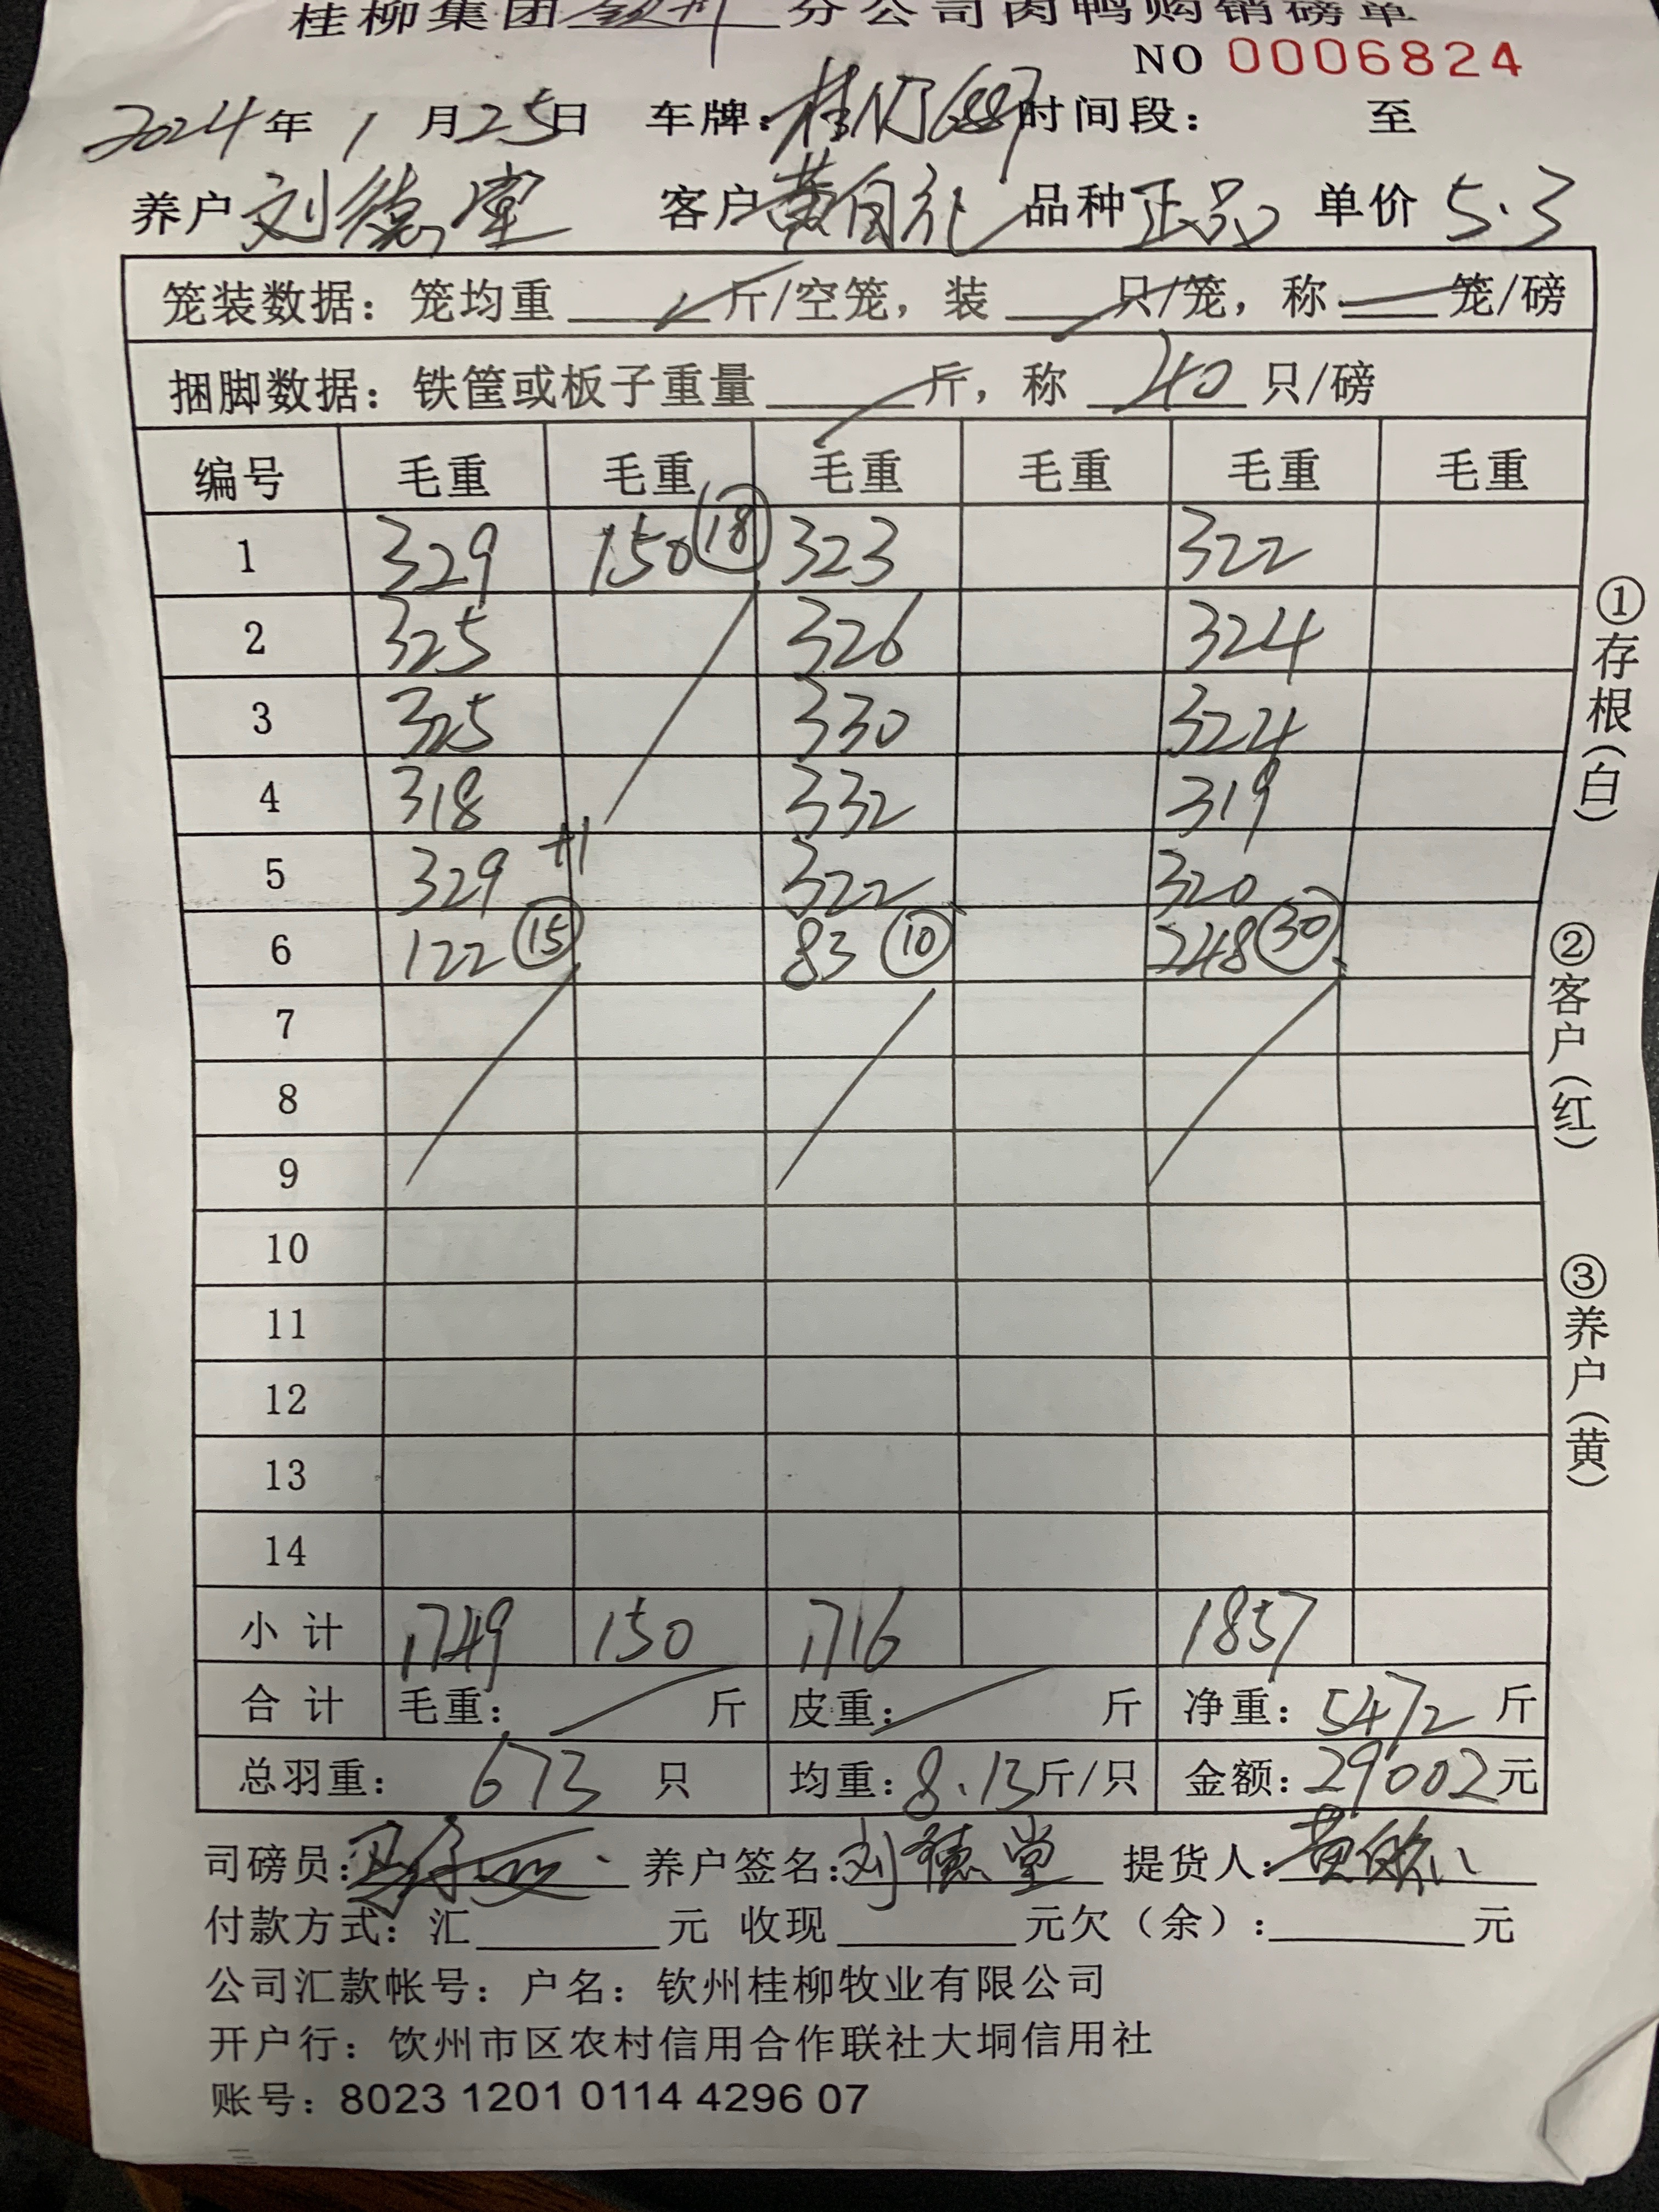 桂柳集团钦州分公司肉鸭购销磅单
NO 0006824
2024年 1 月25日 车牌: 时间段: 至
养户 刘德堂 客户 黄 品种 正品 单价 5.3
笼装数据: 笼均重 斤/空笼, 装 只/笼, 称 笼/磅
捆脚数据: 铁筐或板子重量 斤, 称 40 只/磅
编号 毛重 毛重 毛重 毛重 毛重 毛重
1 329 150 18 323 322
2 325 326 324
3 325 330 324
4 318 332 319
5 329 +1 322 320
6 122 15 83 10 248 30
7
8
9
10
11
12
13
14
小计 1749 150 1716 1857
合计 毛重: 斤 皮重: 斤 净重: 5472 斤
总羽重: 673 只 均重: 8.13 斤/只 金额: 29002 元
司磅员: 养户签名: 刘德堂 提货人: 黄
付款方式: 汇 元 收现 元欠(余): 元
公司汇款帐号: 户名: 钦州桂柳牧业有限公司
开户行: 钦州市区农村信用合作联社大垌信用社
账号: 8023 1201 0114 4296 07
①存根(白)
②客户(红)
③养户(黄)